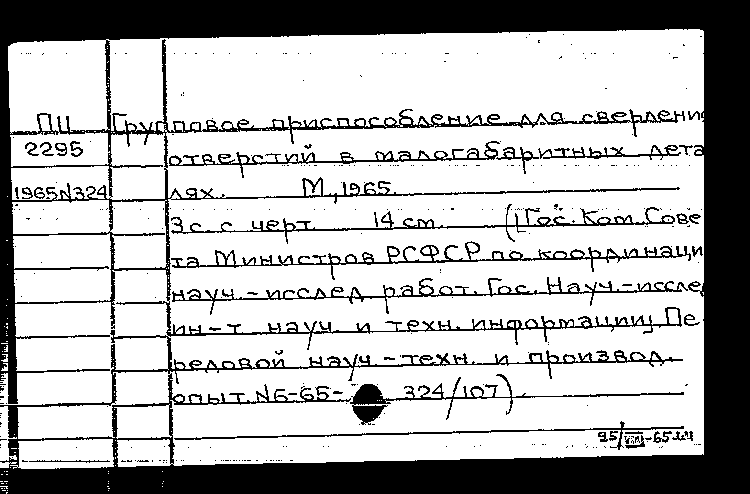 ПЦ Групповое приспособление для сверлени
2295 отверстий в малогабаритных дета
1965N324 лях. М., 1965.
3с. с черт. 14 см. (Гос. Ком. Сове
та Министров РСФСР по координаци
науч.-исслед работ. Гос. Науч.-иссле
ин-т науч. и техн. информации. Пе
редовой науч.-техн. и производ.
опыт. N6-65- 324/107).